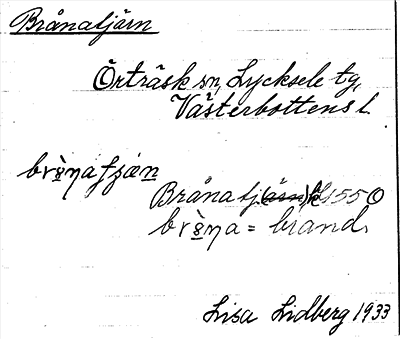 Brånatjärn
Örträsk sn, Lycksele tg,
Västerbottens l.
Brånatj(ärn) 155 O
= brand.
Lisa Lidberg 1933